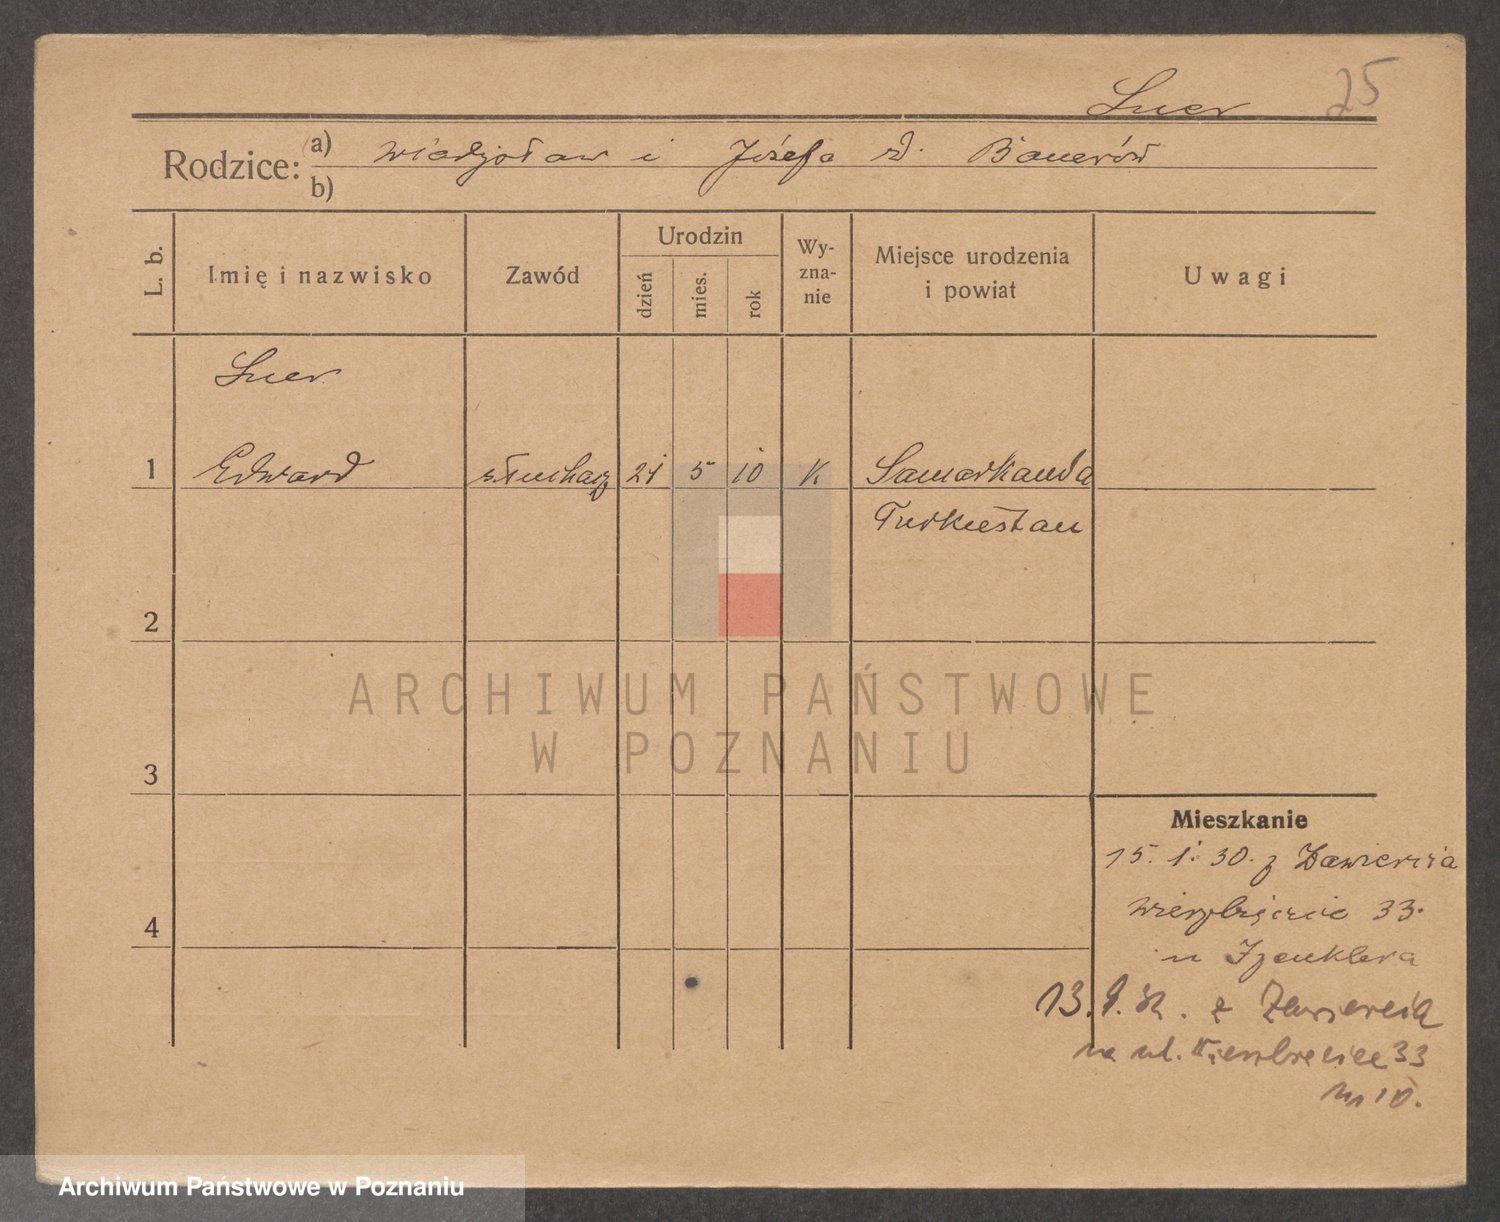 Suer 25
Rodzice: a) Władysław i Józefa z d. Bauerów
b)
L. b. Imię i nazwisko Zawód Urodzin dzień mies. rok Wy-zna-nie Miejsce urodzenia i powiat Uwagi
Suer
1 Edward słuchacz 21 5 10 K Samarkanda
Turkiestan
2
ARCHIWUM PAŃSTWOWE
W POZNANIU
3
Mieszkanie
15. 1. 30. z Zawiercia
4
Wierzbięcice 33.
u
13. z Zawiercia
na ul. Wierzbięcice 33
m 10.
Archiwum Państwowe w Poznaniu